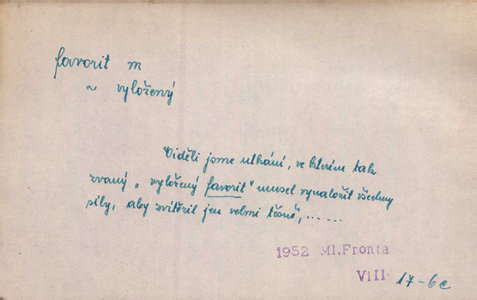 favorit m
~ vyložený
Viděli jsme utkání, ve kterém tak
zvaný „vyložený favorit" musel vynaložit všechny
síly, aby zvítězil jen velmi těsně, .....
1952 Ml. Fronta
VIII 17-6c